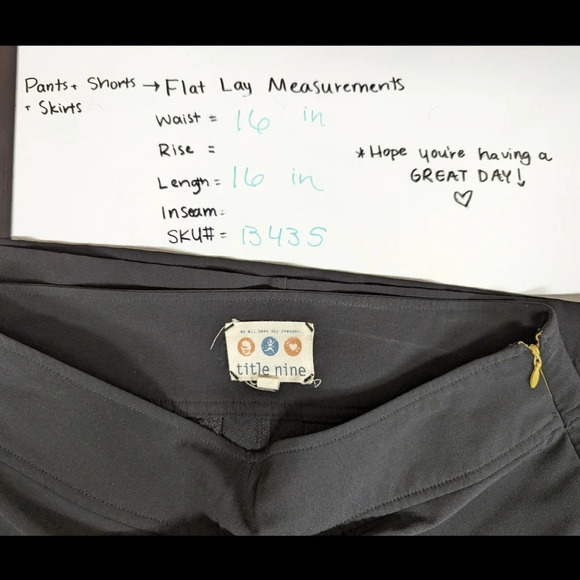 Pants + Shorts → Flat Lay Measurements
+ Skirts
Waist = 16 in
Rise =
Length = 16 in
Inseam:
SKU# = B435
*Hope you're having a
GREAT DAY!
♡
we all have our reasons
title nine